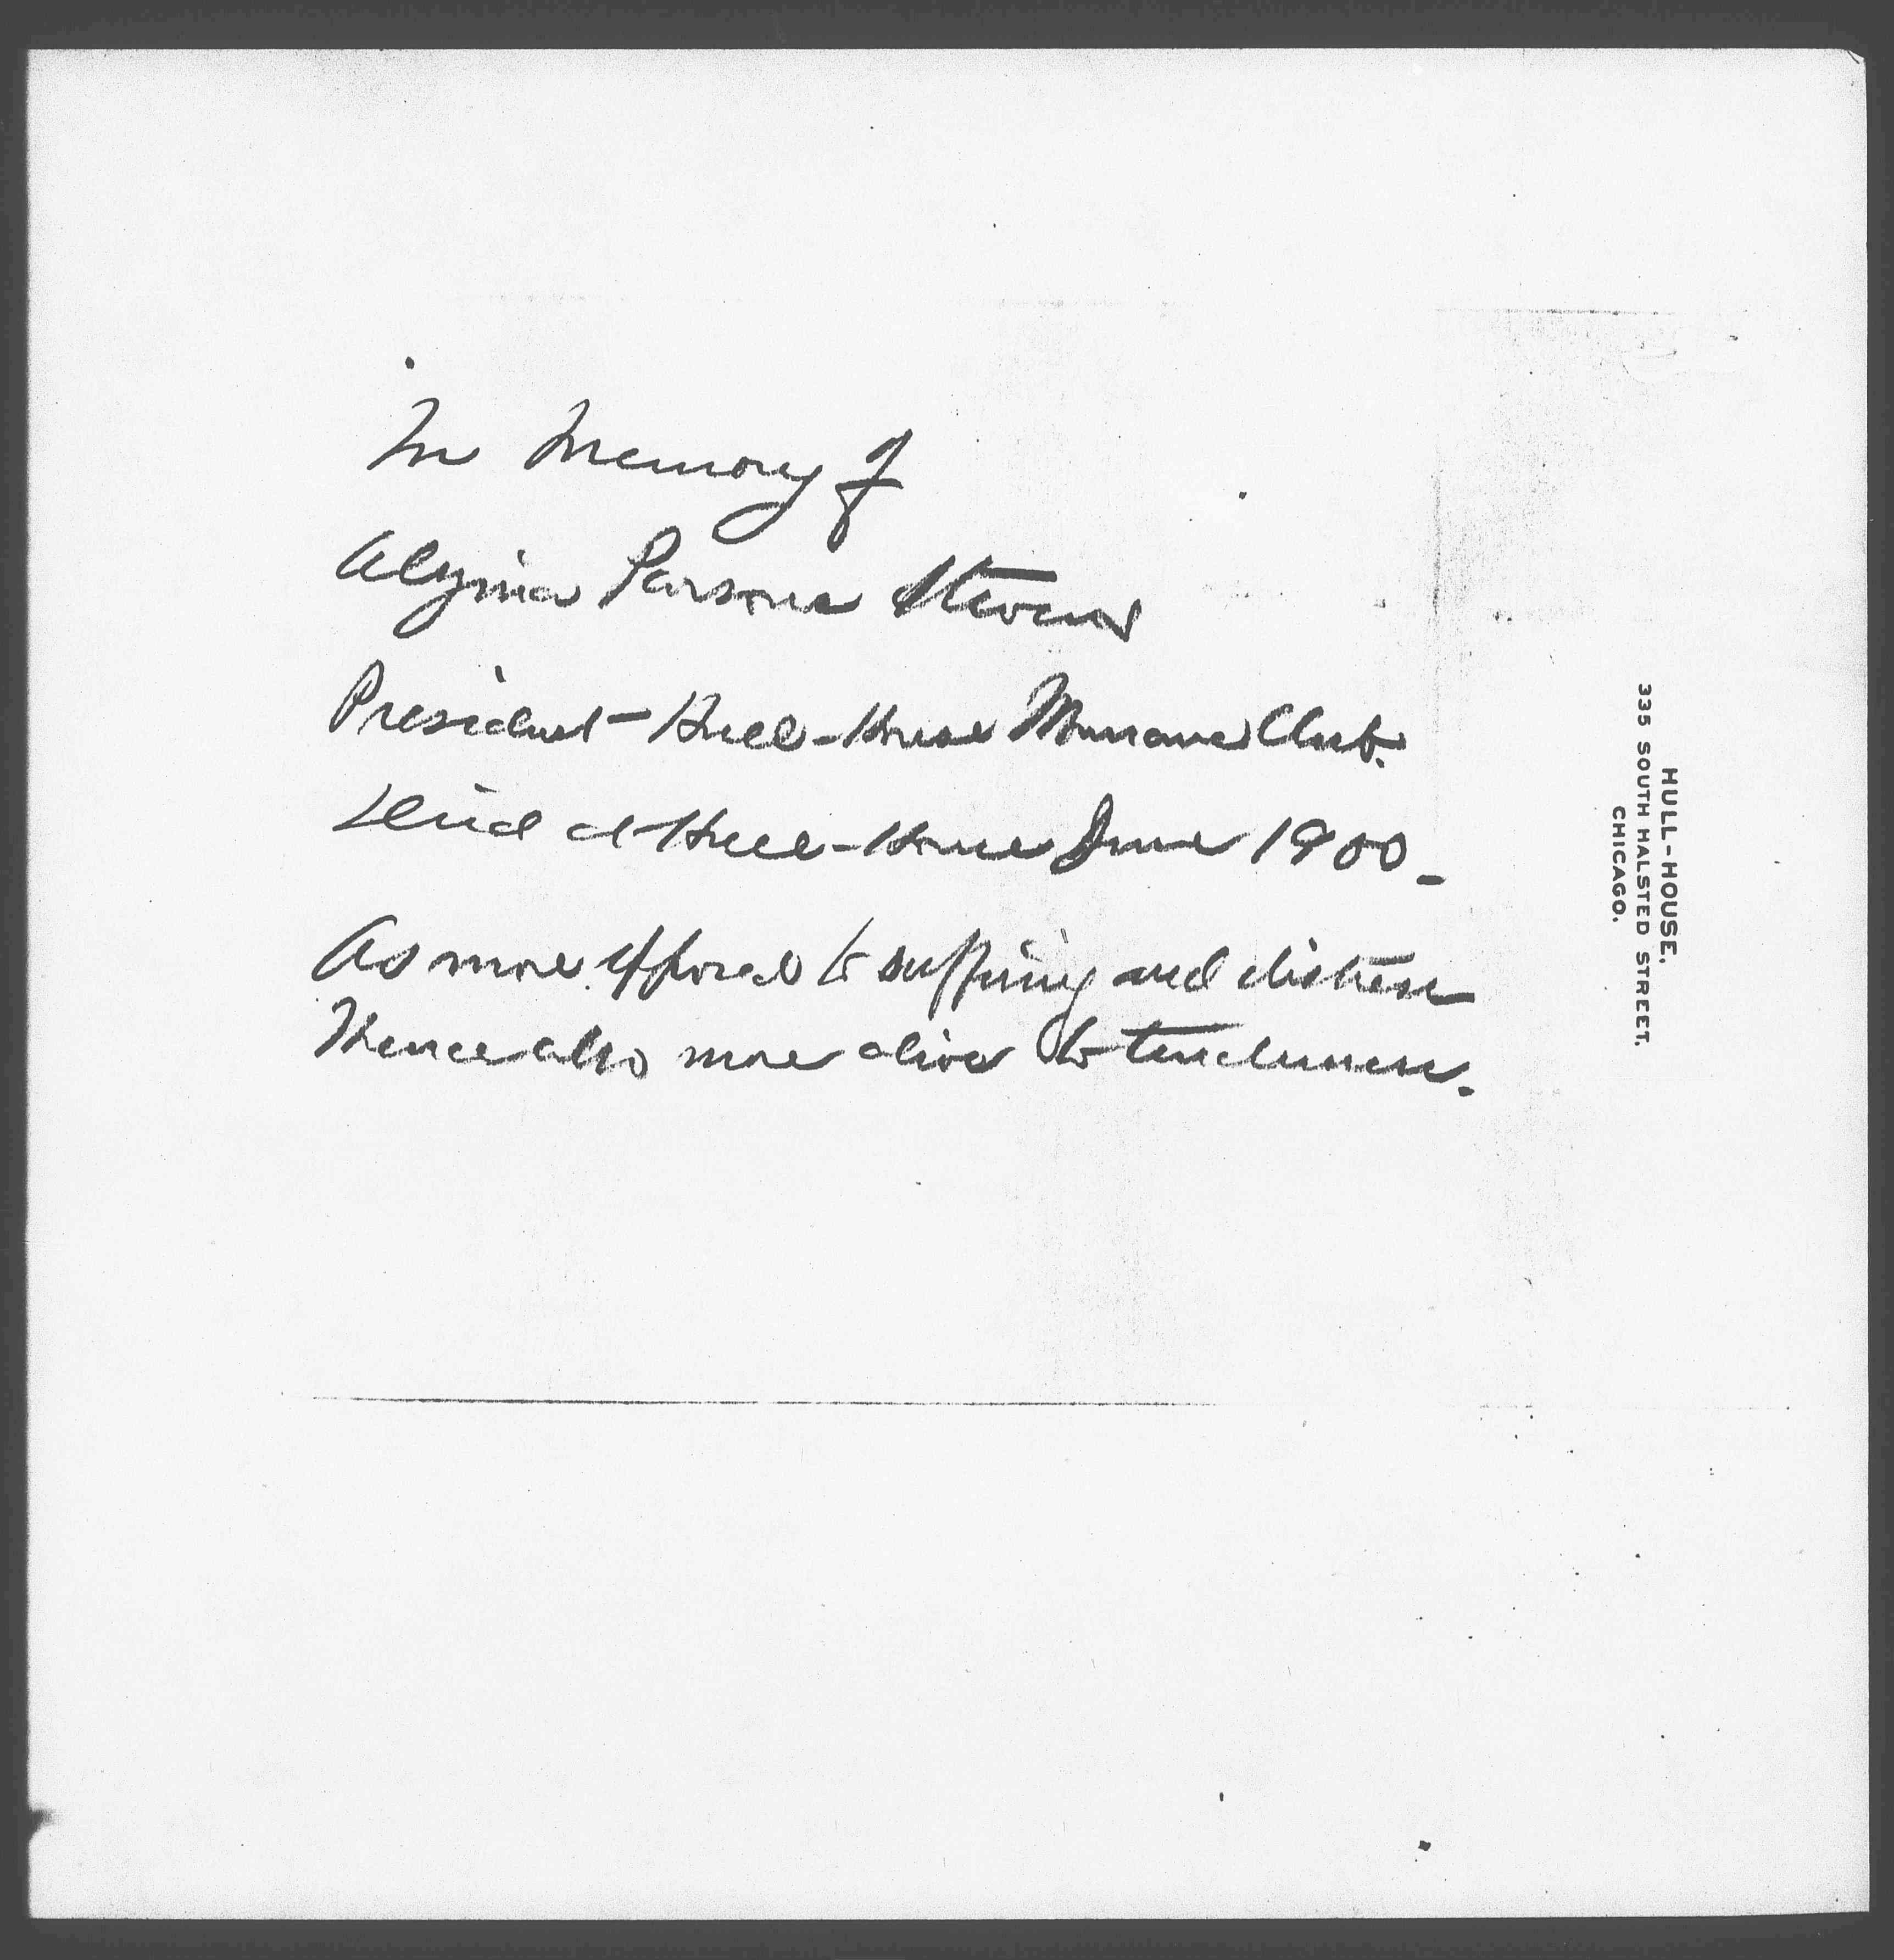 In Memory of
Alzina Parsons Stevens
President Hull-House Woman's Club.
Died at Hull-House June 1900 -
As more exposed to suffering and distress
Thence also more alive to tenderness.
HULL-HOUSE,
335 SOUTH HALSTED STREET,
CHICAGO.